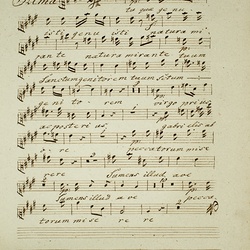 tu quae ge nu
isti genu isti natura mi
rante natura mirante tuum
Sanctum genitorem tuum S: tum
geni to rem virgo prius
ac posterius gabrielis ab
o re peccatorum mise
rere Sumens illud ave
Sumens illud ave pecca
torum mise re re